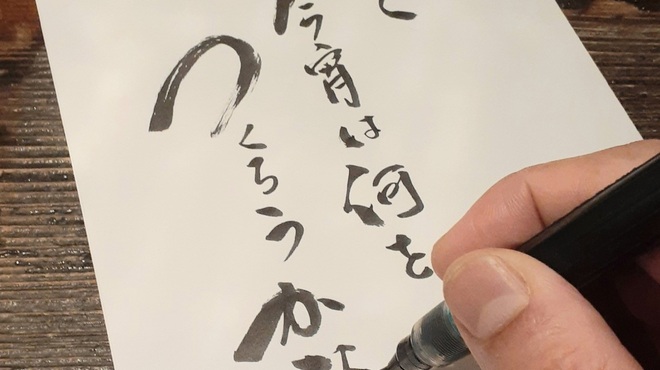 今宵は何を
つくろうか